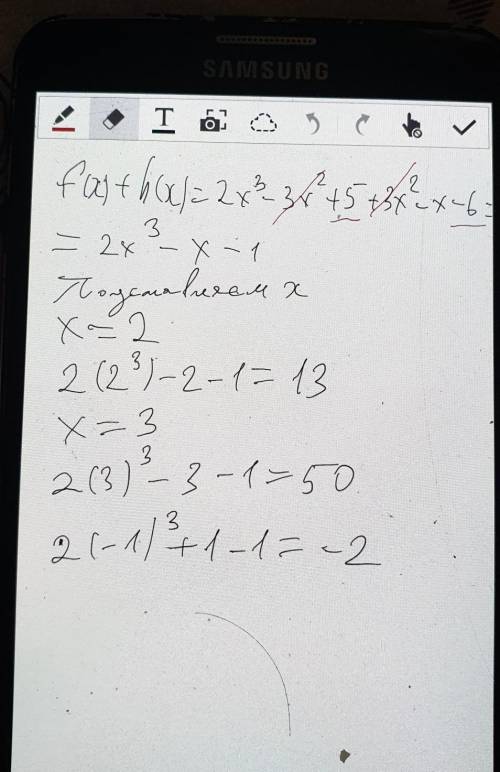 SAMSUNG
T
f(x)+h(x)=2x³-3x²+5+3x²-x-6=
=2x³-x-1
Подставляем x
x=2
2(2³)-2-1=13
x=3
2(3)³-3-1=50
2(-1)³+1-1=-2